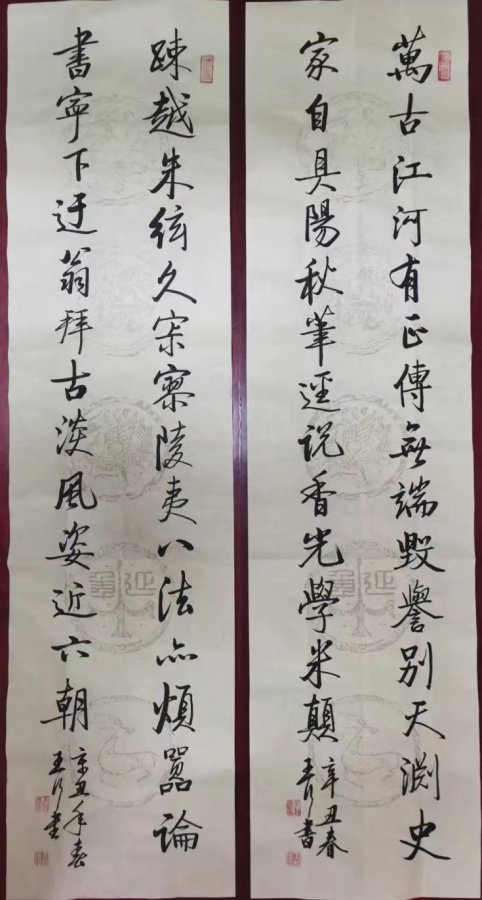 萬古江河有正傳無端毀譽別天淵史
家自具陽秋筆逕説香光學米顛
辛丑春
書
踈越朱絃久寂寥陵夷八法亦煩囂論
書寧下迂翁拜古淡風姿近六朝
辛丑年春
王書